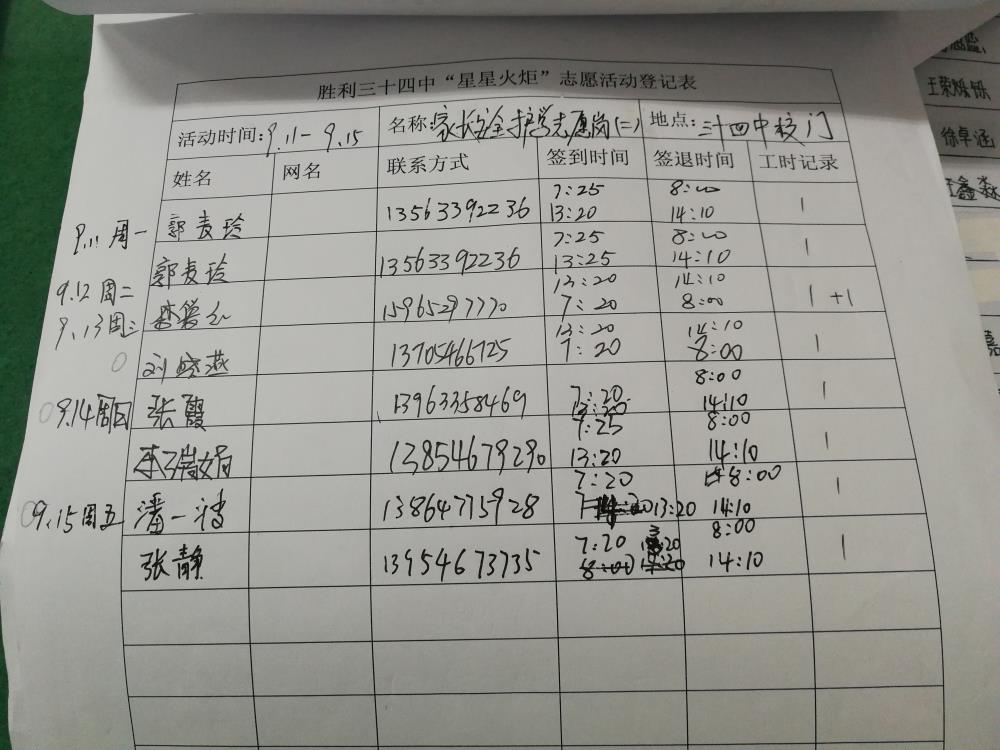 胜利三十四中“星星火炬”志愿活动登记表
活动时间: 9.11-9.15 名称: 家长安全护学志愿岗(二) 地点: 三十四中校门
姓名 网名 联系方式 签到时间 签退时间 工时记录
7:25 8:00
9.11 周一 郭麦玲 13563392236 13:20 14:10 1
7:25 8:00
郭麦玲 13563392236 13:25 14:10 1
9.12 周二 13:20 14:10
15965297770 7:20 8:00 1 +1
9.13 周三 13:20 14:10
刘晓燕 13705466725 7:20 8:00 1
8:00
9.14 周四 张霞 13963358469 7:20 14:10 1
13:20 8:00
7:25
13854679290 13:20 14:10 1
7:20 8:00
9.15 周五 潘一 13864715928 13:20 14:10 1
7:20 8:00
张静 13954673735 14:10 1
王荣烁
徐卓涵
鑫淼
嘉